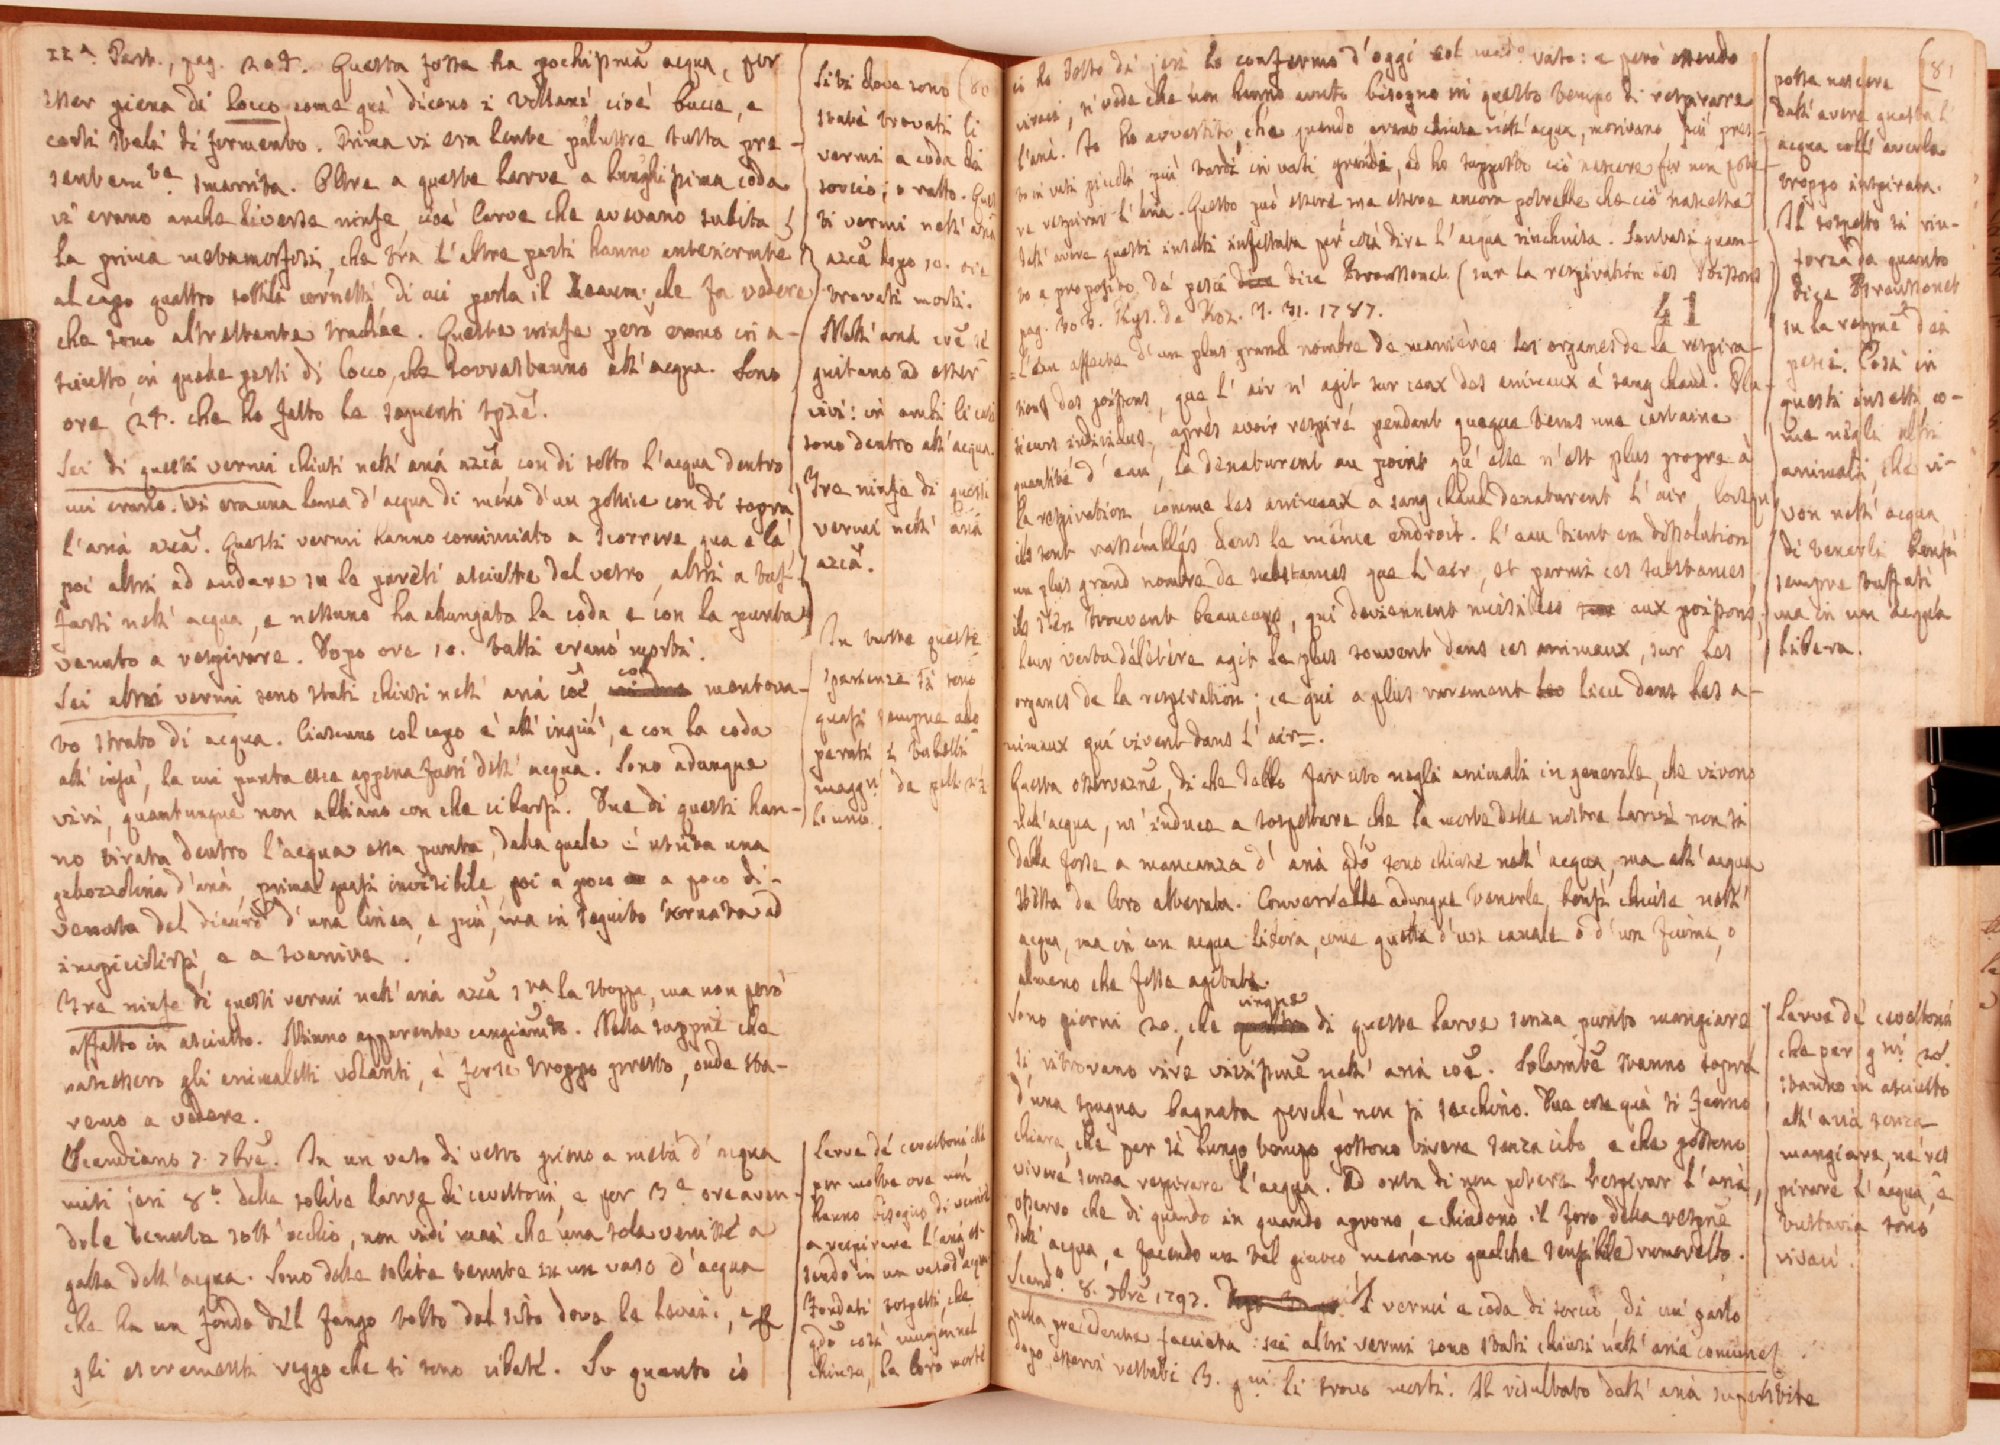 22ª. Part., pag. 204. Questa fossa ha pochissima acqua, per
esser piena di locco come quà dicono i Villani cioè bucce, e
certi steli di formento. Prima vi era lente palustre tutta pre-
sentemte smarrita. Oltre a queste larve a lunghissima coda
vi erano anche diverse ninfe, cioè larve che avevano subita
la prima metamorfosi, che tra l'altre parti hanno anteriormte
al capo quattro sottili cornetti, di cui parla il Reaum. che fa vedere
che sono altrettante trachee. Queste ninfe però erano in a-
sciutto in quelle parti di locco, che sovrastanno all'acqua. Sono
ore 24. che ho fatto le seguenti spze.
Sei di questi vermi chiusi nell'aria azca con di sotto l'acqua dentro
cui erano. Vi era una lama d'acqua di meno d'un pollice con di sopra
l'aria azca. Questi vermi hanno cominciato a scorrere qua e là,
poi altri ad andare su le pareti asciutte del vetro, altri a tuf-
farsi nell'acqua, e nessuno ha allungata la coda e con la punta
venuto a respirare. Dopo ore 10. tutti erano morti.
Sei altri vermi sono stati chiusi nell'aria coe col mentova-
to strato di acqua. Ciascuno col capo è all'ingiù, e con la coda
all'insù, la cui punta esce appena fuori dell'acqua. Sono adunque
vivi, quantunque non abbiano con che cibarsi. Due di questi han-
no tirata dentro l'acqua essa punta, dalla quale è uscita una
gallozzolina d'aria, prima quasi invisibile poi a poco a poco di-
venuta del diametro d'una linea, e più, ma in seguito tornata ad
impiciolirsi, e a svanire.
Tre ninfe di questi vermi nell'aria azca sra la stoppa, ma non però
affatto in asciutto. Niuno apparente cangiamto. Nella suppne che
nascessero gli animaletti volanti, è forse troppo presto, onde sta-
remo a vedere.
Scandiano 7. 7bre. In un vaso di vetro pieno a metà d'acqua
misi jeri 8. delle solite larve di cevettoni, e per 3. ore aven-
dole tenute sott'occhio, non vidi mai che una sola venisse a
galla dell'acqua. Sono delle solite tenute in un vaso d'acqua
che ha un fondo del fango tolto dal sito dove le levai, e
gli escrementi veggo che si sono cibate. Su quanto io
Siti dove sono (80
stati trovati li
vermi a coda di
sorcio, o ratto. Ques
ti vermi nell'aria
azca dopo 10. ore
trovati morti.
Nell'aria coe se
guitano ad esser
vivi: in ambi li casi
sono dentro all'acqua.
Tre ninfe di questi
vermi nell'aria
azca.
In tutte queste
sperienze si sono
quasi sempre ado
perati i tubetti
maggri da poll.
l'uno.
Larve de cevettoni che
per molte ore non
hanno bisogno di venire
a respirare l'aria es-
sendo in un vaso d'acqua
Fondati sospetti, che
qdo così muojon nel
chiuso, la loro morte
io ho detto di jeri lo confermo d'oggi vato: e però essendo
vivaci, si vede che non hanno avuto bisogno in questo tempo di respirare
l'aria. Io ho avvertito, che quando erano chiuse nell'acqua, morivano più pres-
to in vasi piccoli più tardi in vasi grandi, ed ho supposto ciò nascere per non pote-
re respirar l'aria. Questo può essere ma essere ancora potrebbe che ciò nascesse
dall'avere questi insetti infestata per così dire l'acqua rinchiusa. Sentasi quan-
to a proposito de' pesci dice Broussonet (sur la respiration des Poissons
pag. 303. Rys. de Roz. T. 31. 1787. 41
= L'eau affecte d'un plus grand nombre de manières les organes de la respira-
tions des poissons, que l'air n'agit sur ceux des animaux à sang chaud. Plu-
sieurs individus, après avoir respiré pendant queque tems une certaine
quantité d'eau, la denaturent au point qu'elle n'est plus propre à
la respiration comme les animaux a sang chaud denaturent l'air, lorsqu
ils sont rassemblés dans le même endroit. L'eau tient en dissolution
un plus grand nombre de substances que l'air, et parmi ces substances,
ils s'en trouvent beaucoup, qui deviennent nuisibles aux poissons;
leur vertu délétère agit le plus souvent dans ces animaux, sur les
organes de la respiration; ce qui a plus rarement lieu dans les a-
nimaux qui vivent dans l'air=.
Questa osservazne, di che debbo far uso negli animali in generale, che vivono
nell'acqua, m'induce a sospettare che la morte delle nostre larve non sia
dalle forse a mancanza d'aria qdo sono chiuse nell'acqua, ma all'acqua
stessa da loro alterata. Converrebbe adunque tenerle bensì chiuse nell'
acqua, ma in un acqua libera, come quella d'un canale o d'un fiume, o
almeno che fosse agitata.
Sono giorni 20, che cinque di queste larve senza punto mangiare
si ritrovano vive vivissime nell'aria coe. Solamte stanno sopra
d'una spugna bagnata perché non si secchino. Due cose quà si fanno
chiare, che per sì lungo tempo possono vivere senza cibo e che possono
vivere senza respirare l'acqua. Ad onta di non potere respirar l'aria,
osservo che di quando in quando aprono, e chiudono il foro della respne
dell'acqua, e facendo un tal giuoco menano qualche sensibile rumoretto.
Scando. 8. 7bre 1797. I vermi a coda di sorcio, di cui parlo
nella precedente facciata: sei altri vermi sono stati chiusi nell'aria comune
dopo esservi restati 3. gni li trovo morti. Il risultato dell'aria superstite
(81
possa nascere
dall'avere guasta l'
acqua coll'averla
troppo inspirata.
Il sospetto si rin-
forza da quanto
dice Broussonet
su la respne dei
pesci. Così in
questi insetti co-
me negli altri
animali, che vi-
von nell'acqua
di tenerli bensì
sempre tuffati
ma in un acqua
libera.
Larve de' cevettoni
che per gni 20
stanno in asciutto
all'aria senza
mangiare, nè res
pirare l'acqua, e
tuttavia sono
vivaci.